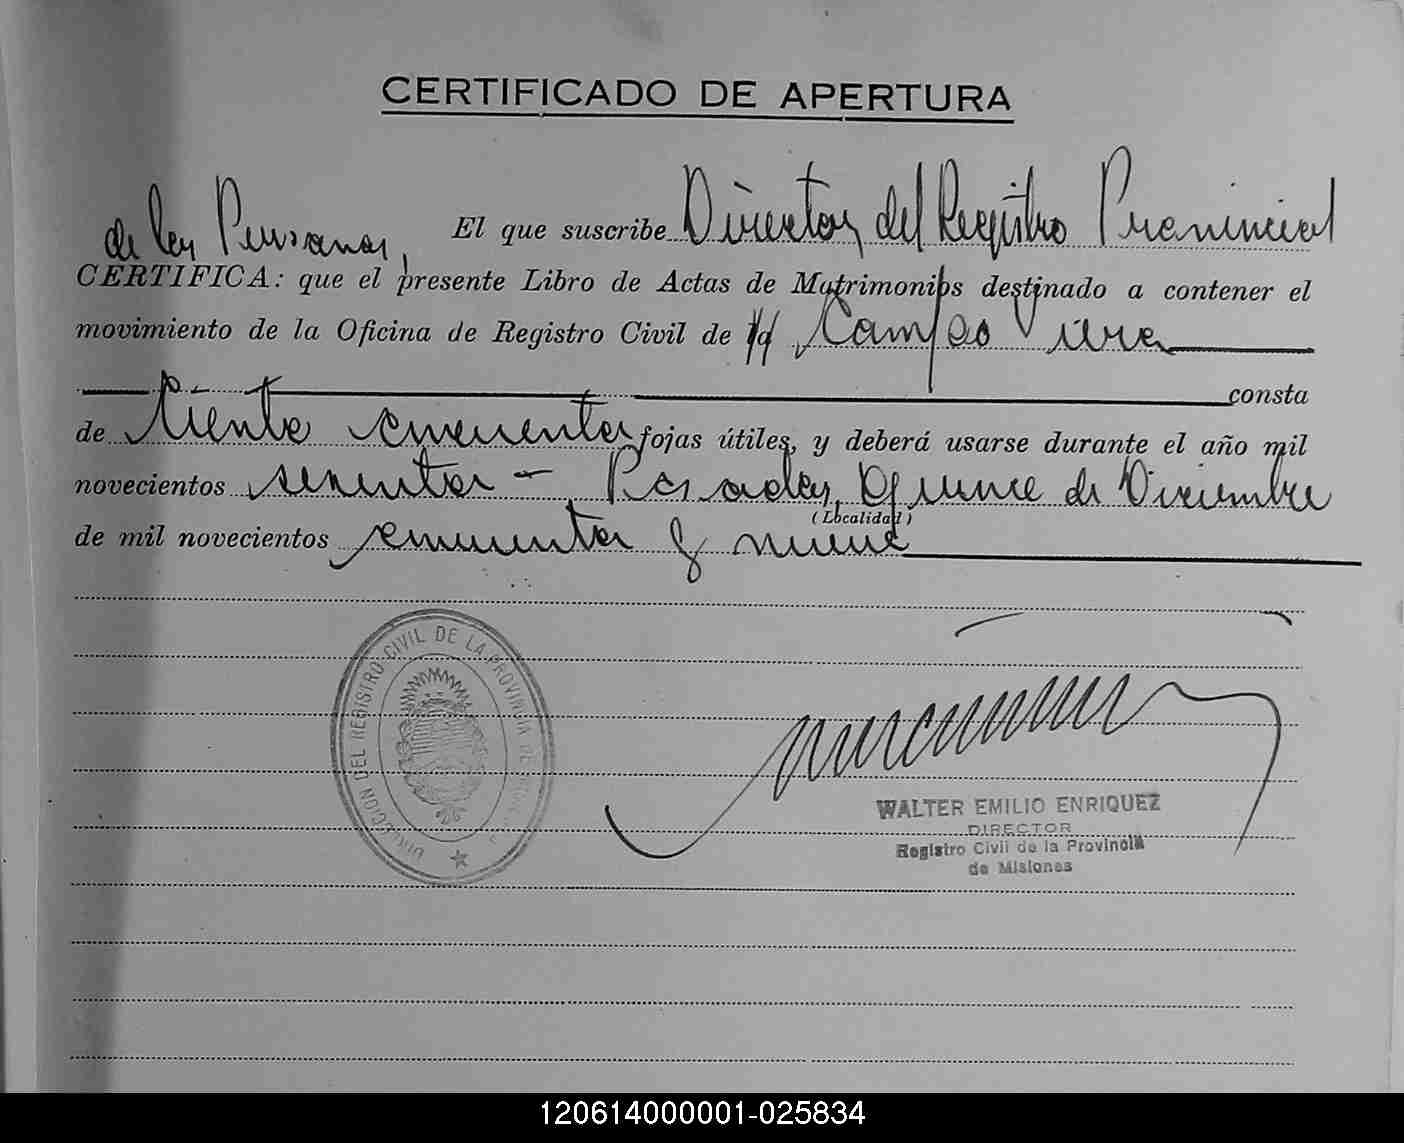 CERTIFICADO DE APERTURA
El que suscribe Director del Registro Provincial
de las Personas,
CERTIFICA: que el presente Libro de Actas de Matrimonios destinado a contener el
movimiento de la Oficina de Registro Civil de Campo Viera
consta
de Ciento cincuenta fojas útiles, y deberá usarse durante el año mil
novecientos sesenta - Posadas, Quince de Diciembre
(Localidad)
de mil novecientos cincuenta y nueve
DIRECCION DEL REGISTRO CIVIL DE LA PROVINCIA DE
WALTER EMILIO ENRIQUEZ
DIRECTOR
Registro Civil de la Provincia
de Misiones
120614000001-025834